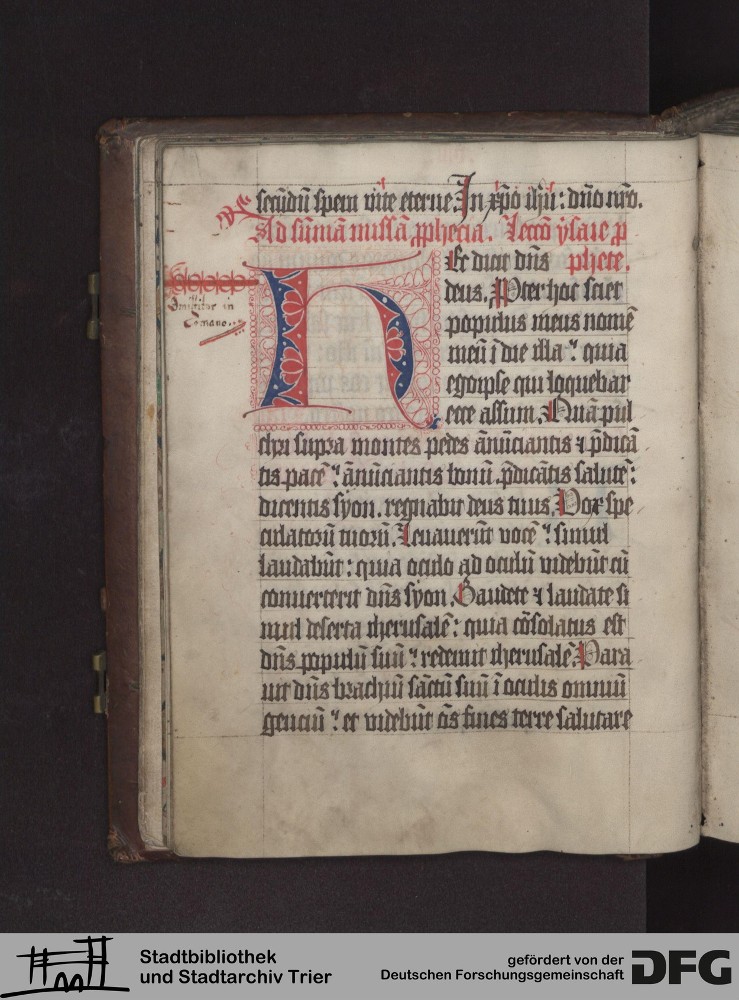 secūdū spem vite eterne. In xp̄o ihū : dn̄o nr̄o.
Ad sūmā missā ꝓphecia. Leccō ysaie ꝓ
phete.
Hec dicit dn̄s
deus. Propter hoc sciet
populus meus nomē
meū ī die illa : quia
egoipse qui loquebar
ecce assum. Quā pul
chri supra montes pedes ānūciantis ⁊ p̄dicā
tis pacē : ānūciantis bonū. p̄dicātis salutē :
dicentis syon. regnabit deus tuus. Vox spe
culatorū tuorū. Leuauerūt vocē : simul
laudabūt : quia oculo ad oculū videbūt cū
conuerterit dn̄s syon. Gaudete ⁊ laudate si
mul deserta iherusalē : quia cōsolatus est
dn̄s populū suū : redemit iherusalē. Para
uit dn̄s brachiū sāctū suū ī oculis omniū
genciū : et videbūt oēs fines terre salutare
Omittitur in
Romano.
Stadtbibliothek
und Stadtarchiv Trier
gefördert von der
Deutschen Forschungsgemeinschaft
DFG